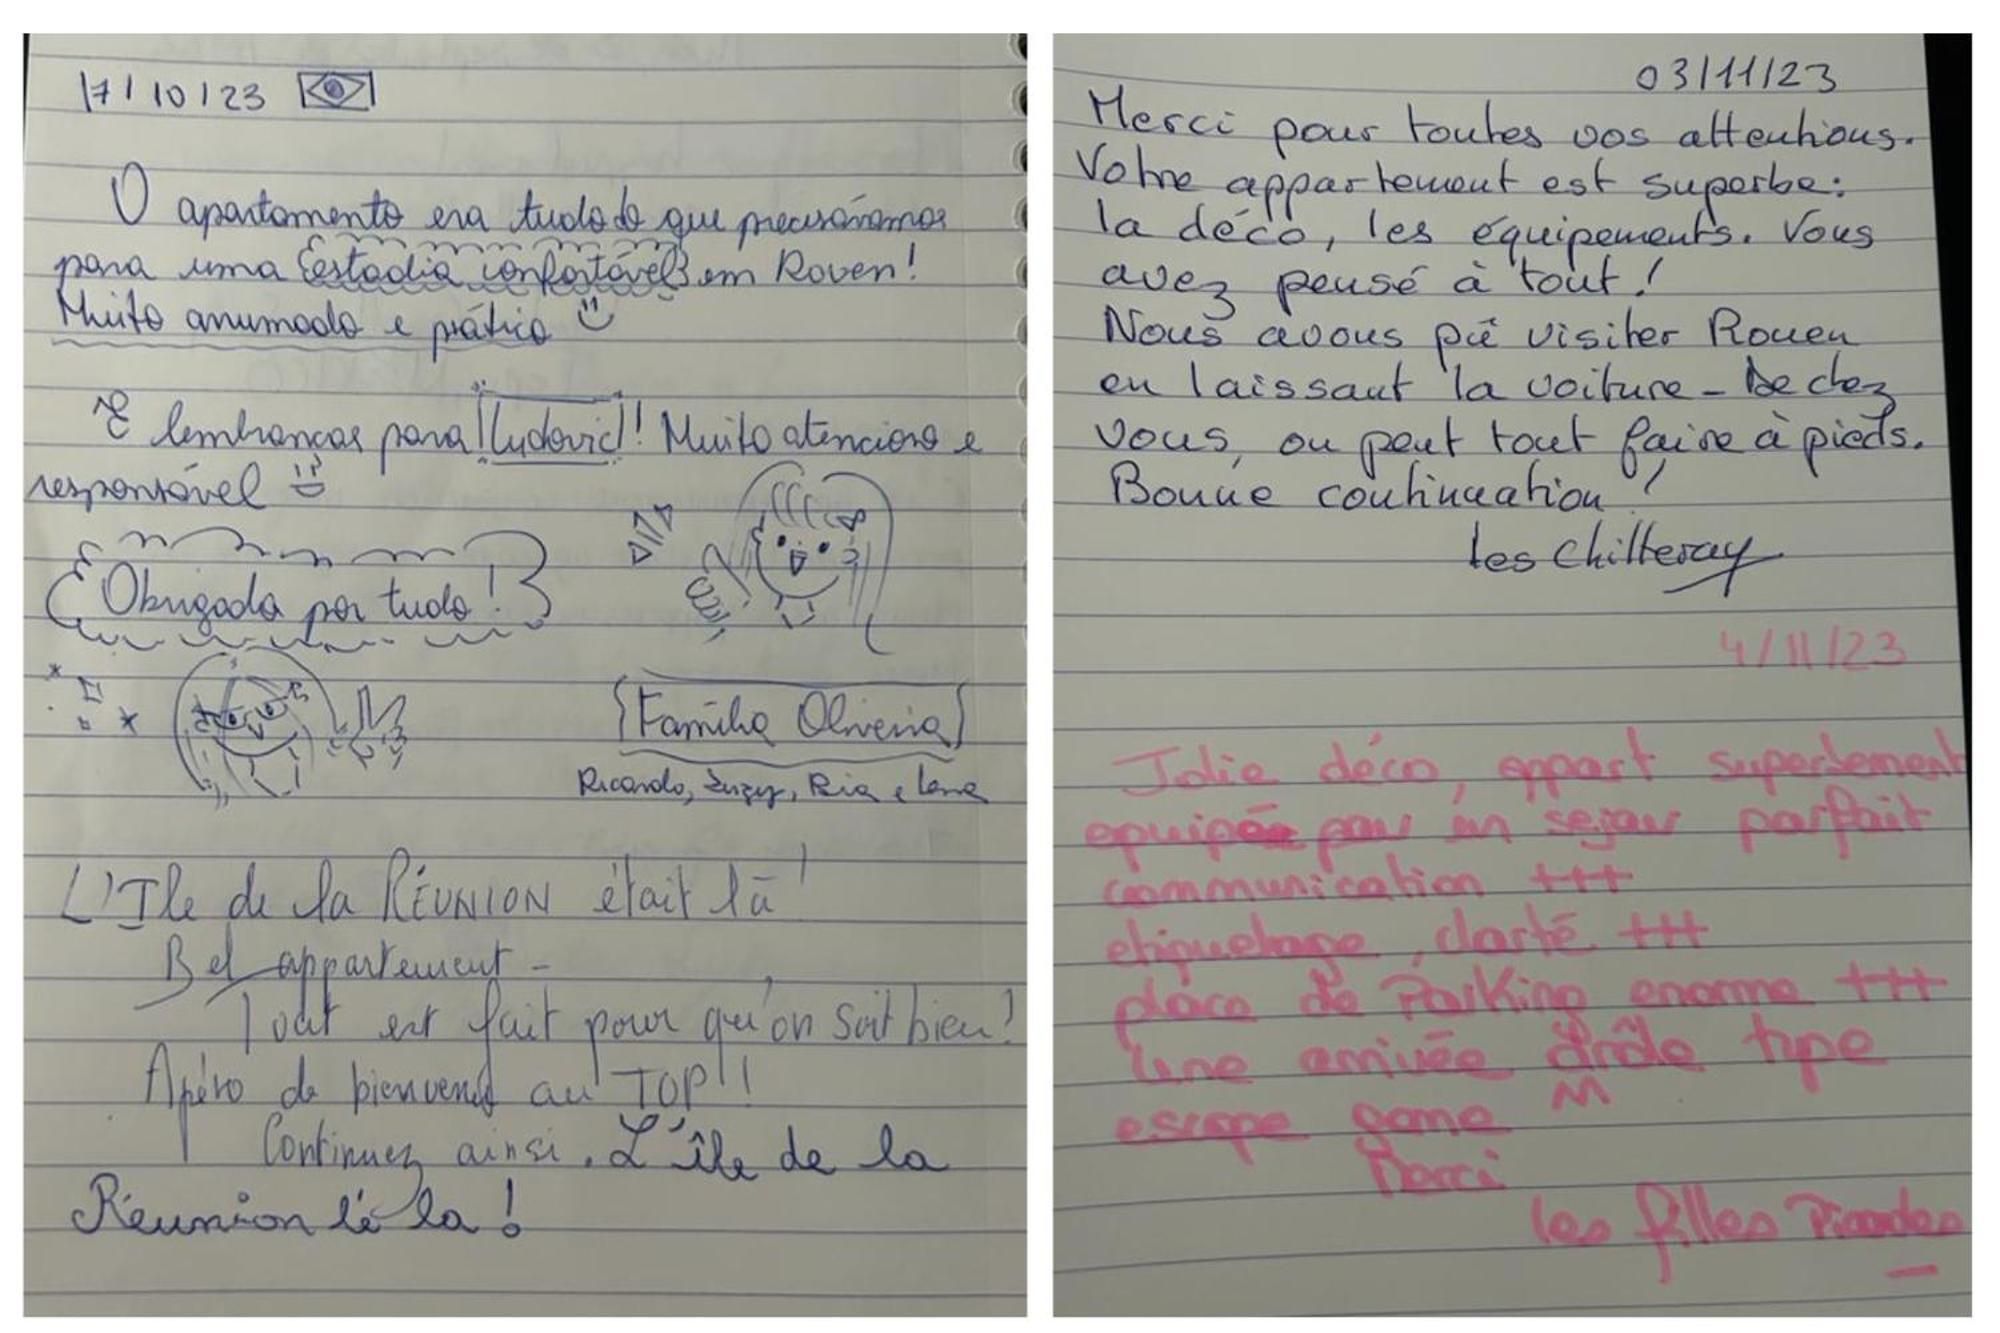 17/10/23
O apartamento era tudo do que precisávamos
para uma estadia confortável em Rouen!
Muito arrumado e prático
E lembranças para Ludovic! Muito atencioso e
responsável
Obrigada por tudo!
Família Oliveira
Ricardo, Bia e
L'Ile de la RÉUNION était là!
Bel appartement -
Tout est fait pour qu'on soit bien!
Apéro de bienvenu au TOP!!
Continuez ainsi. L'île de la
Réunion lé la!
03/11/23
Merci pour toutes vos attentions.
Votre appartement est superbe:
la déco, les équipements. Vous
avez pensé à tout!
Nous avons pû visiter Rouen
en laissant la voiture - De chez
vous, on peut tout faire à pieds.
Bonne continuation!
Les
4/11/23
Jolie déco, appart superbement
equipée pour un sejour parfait
communication +++
etiquetage, clarté +++
place de Parking enorme +++
Une arrivée drôle type
escape game ^^
Merci
les filles Picardes